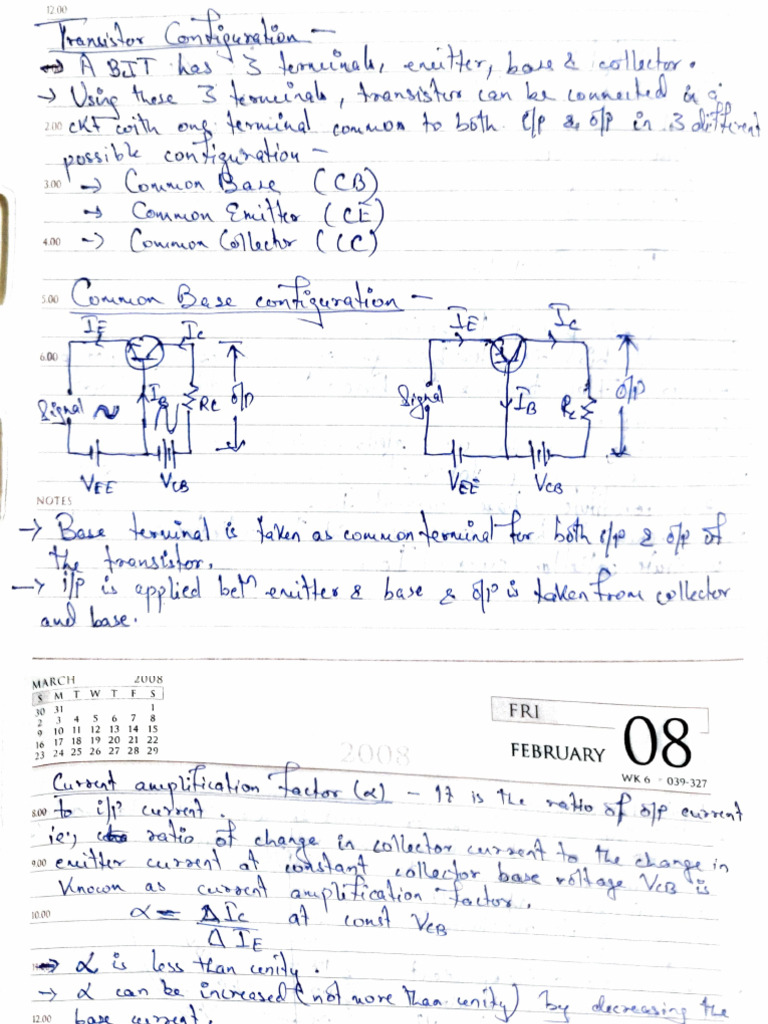 12.00
Transistor Configuration -
→ A BJT has 3 terminals, emitter, base & collector.
→ Using these 3 terminals, transistor can be connected in a
2.00 ckt with one terminal common to both i/p & o/p in 3 different
possible configuration -
3.00 → Common Base (CB)
→ Common Emitter (CE)
4.00 → Common Collector (CC)
5.00 Common Base configuration -
IE IC IE IC
6.00
Signal IB RC o/p Signal IB RC o/p
VEE VCB VEE VCB
NOTES
→ Base terminal is taken as common terminal for both i/p & o/p of
the transistor.
→ i/p is applied betn emitter & base & o/p is taken from collector
and base.
MARCH 2008
S M T W T F S
30 31 1
2 3 4 5 6 7 8
9 10 11 12 13 14 15
16 17 18 19 20 21 22
23 24 25 26 27 28 29
2008
FRI
FEBRUARY 08
WK 6 039-327
Current amplification factor (α) - It is the ratio of o/p current
8.00 to i/p current.
ie; ratio of change in collector current to the change in
9.00 emitter current at constant collector base voltage VCB is
known as current amplification factor.
10.00 α = ΔIC at const VCB
ΔIE
→ α is less than unity.
→ α can be increased (not more than unity) by decreasing the
12.00 base current.